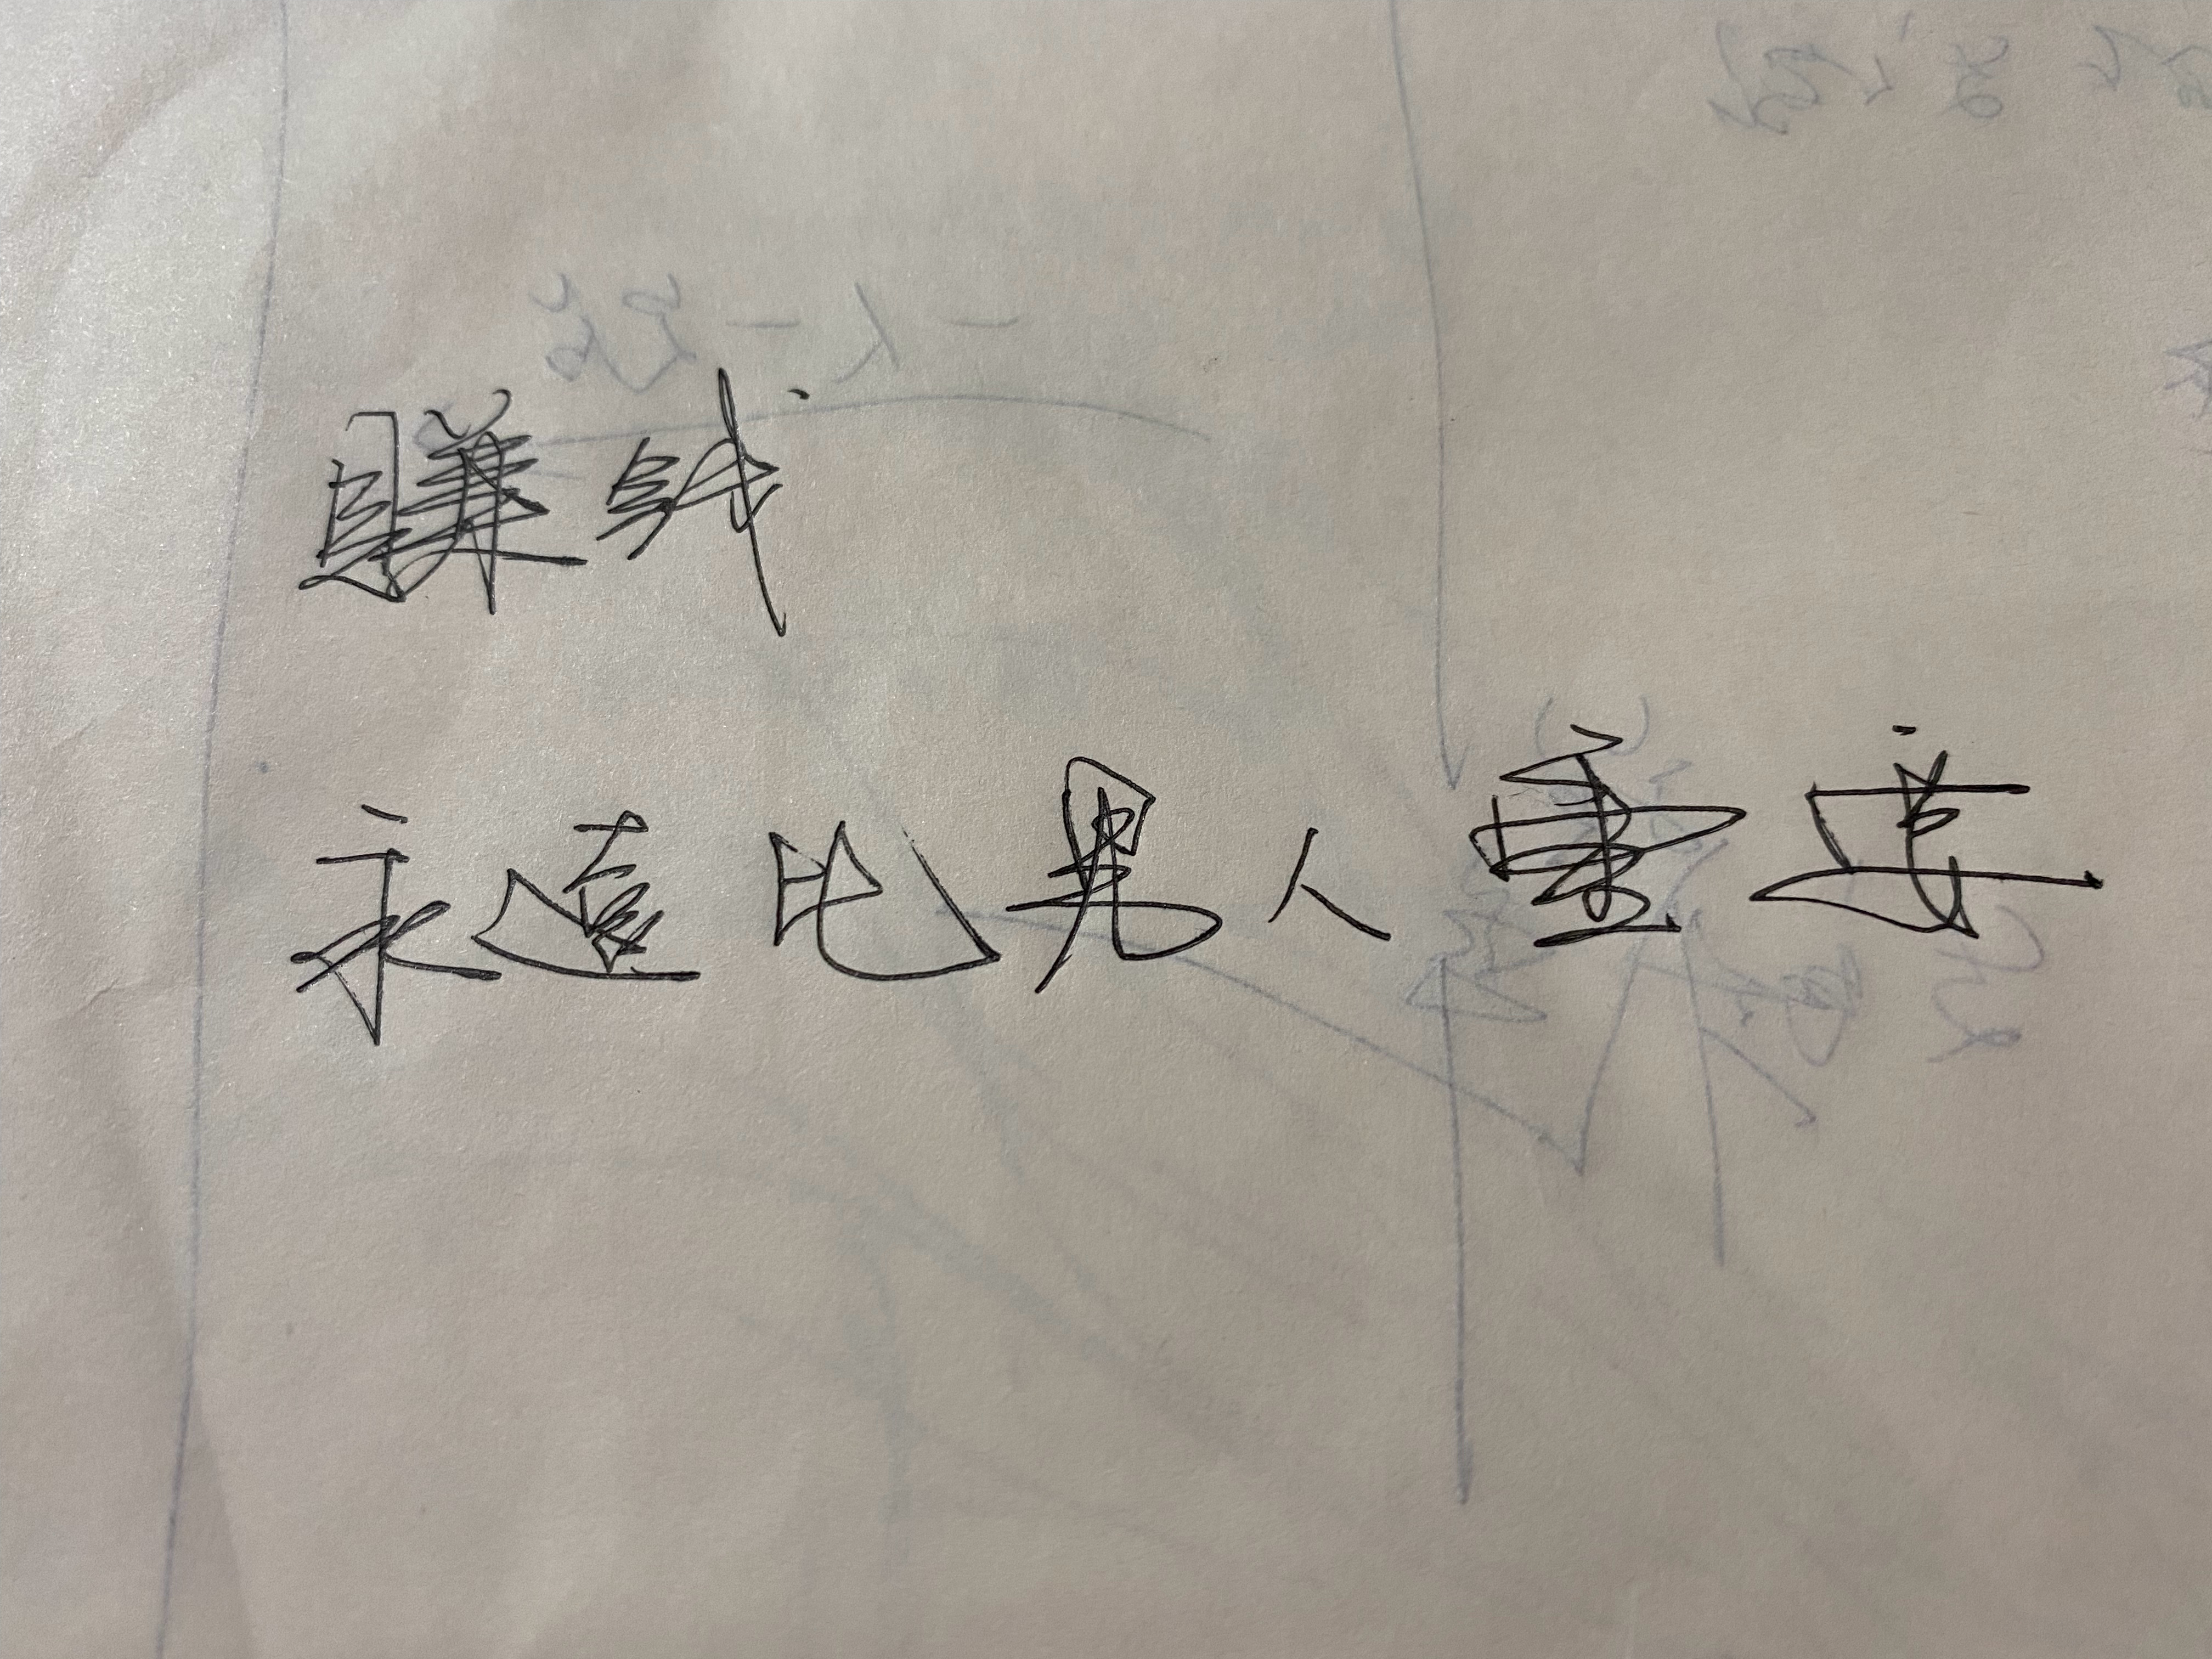 賺錢
永遠比男人重要